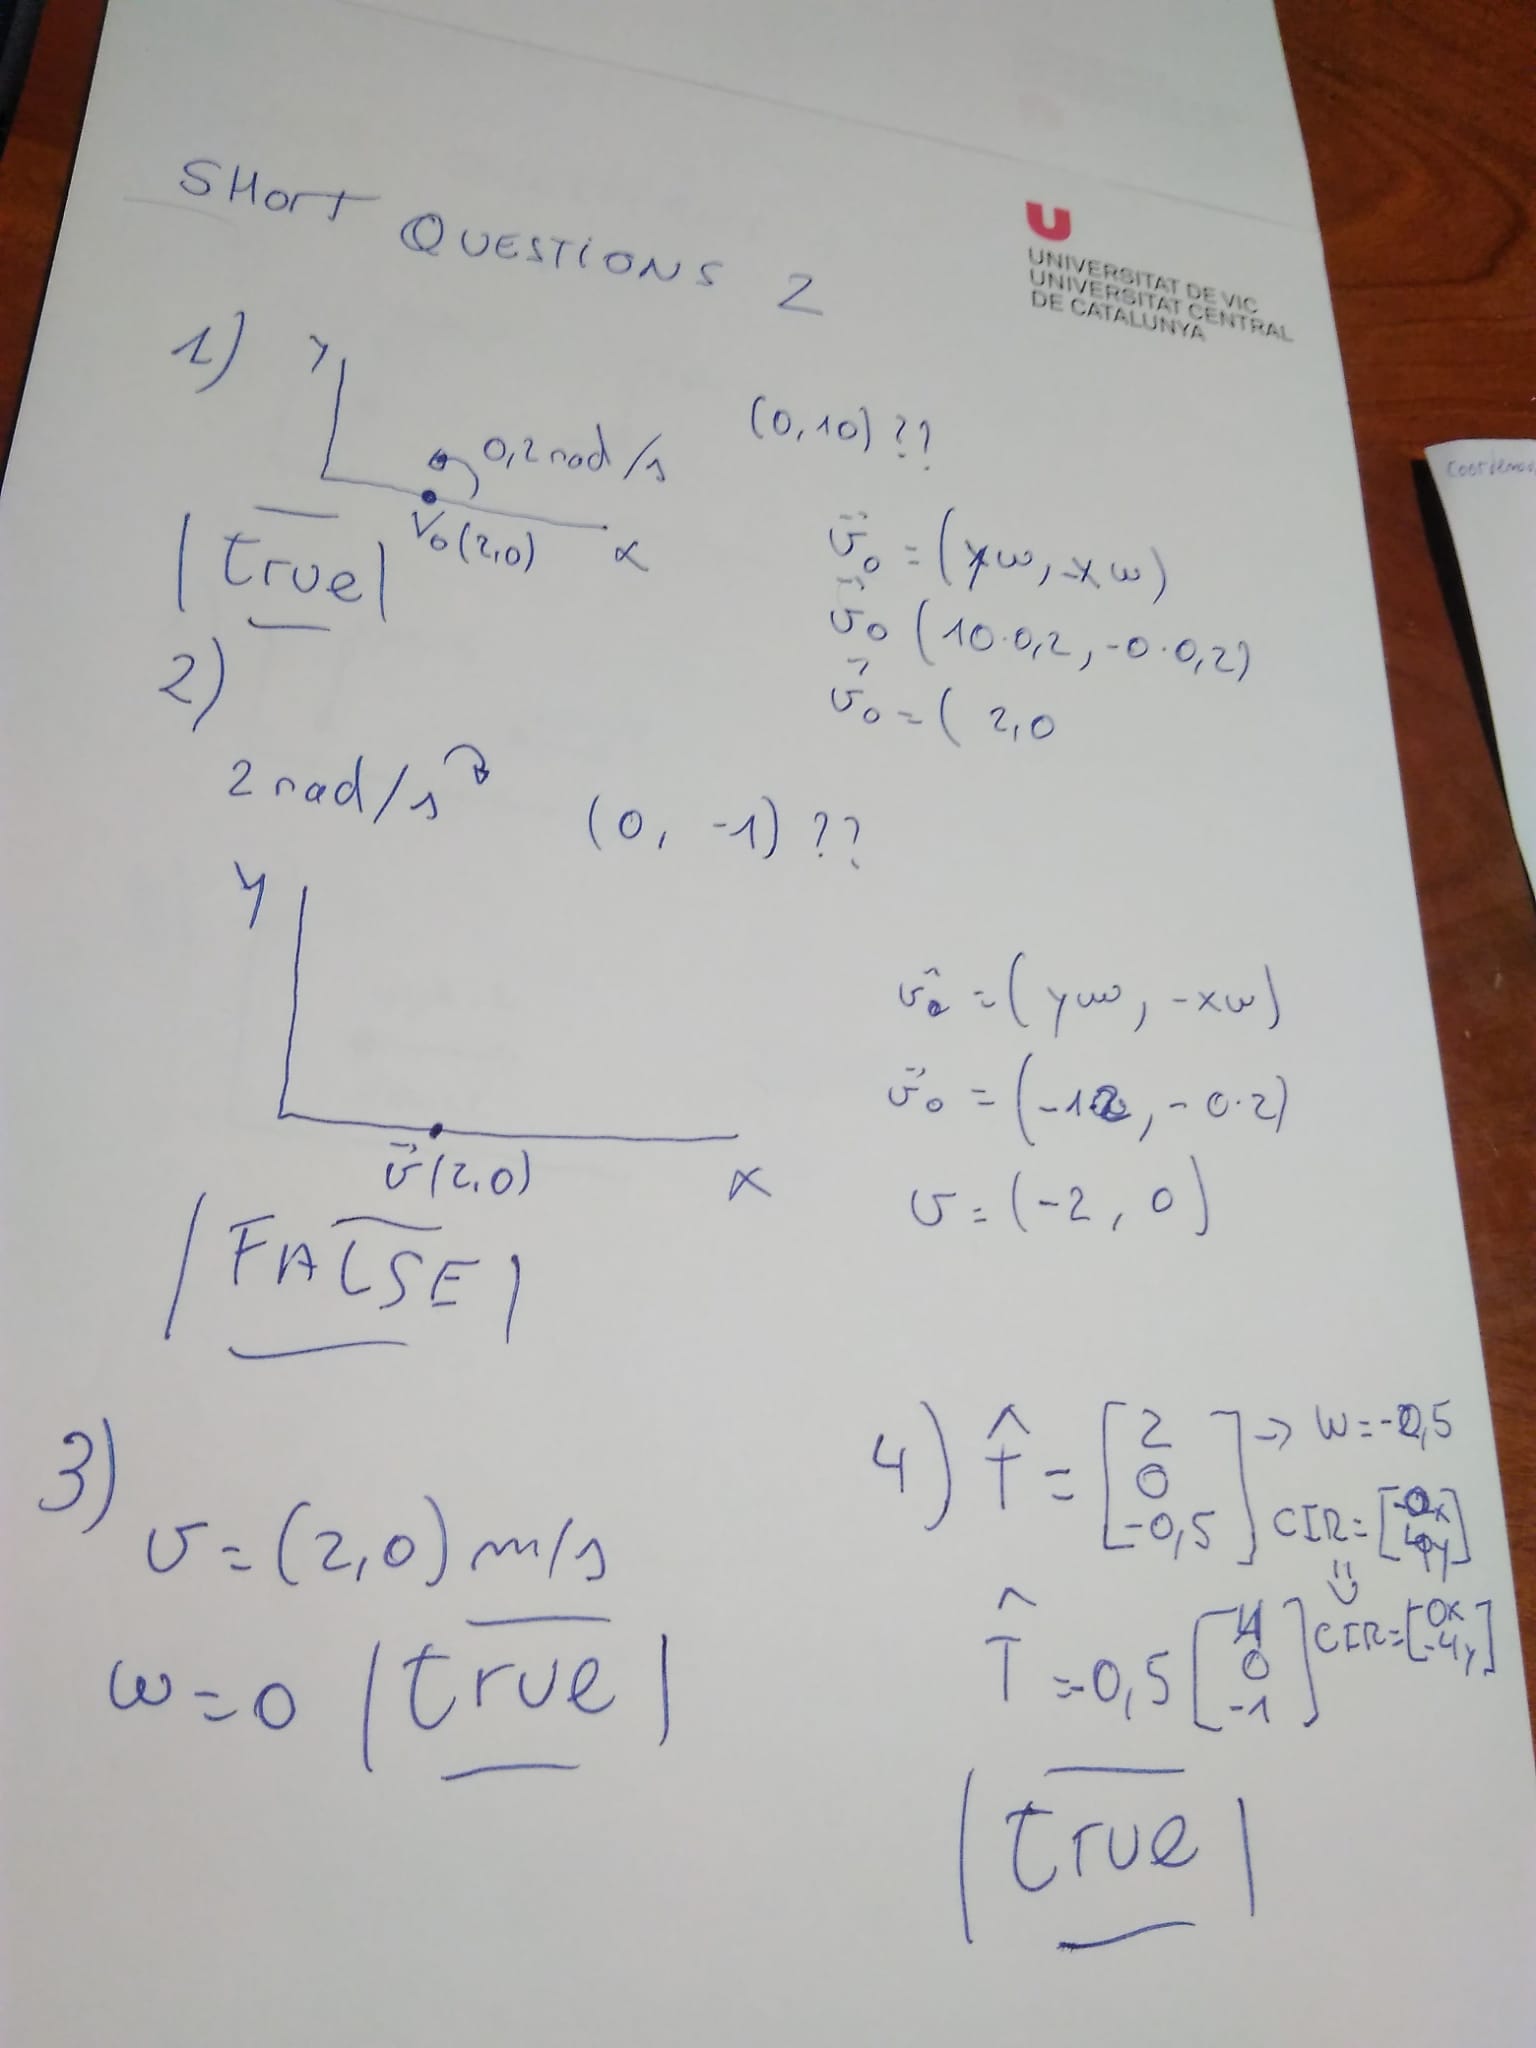 SHort QUESTIONS 2
U
UNIVERSITAT DE VIC
UNIVERSITAT CENTRAL
DE CATALUNYA
1)
y
0,2 rad/s
V₀(2,0)
x
|true|
(0,10)??
v⃗₀ = (yω, -xω)
v⃗₀ (10·0,2, -0·0,2)
v⃗₀ = ( 2,0
2)
2 rad/s
(0, -1)??
y
v⃗(2,0)
x
v⃗₀ = (yω, -xω)
v⃗₀ = (-1·2, -0·2)
v = (-2, 0)
|FALSE|
3)
v = (2,0) m/s
ω = 0 |true|
4) T̂ = [2 0 -0,5] → W = -0,5
T̂ = -0,5 [-4 0 -1] CIR = [0x -4y]
|true|